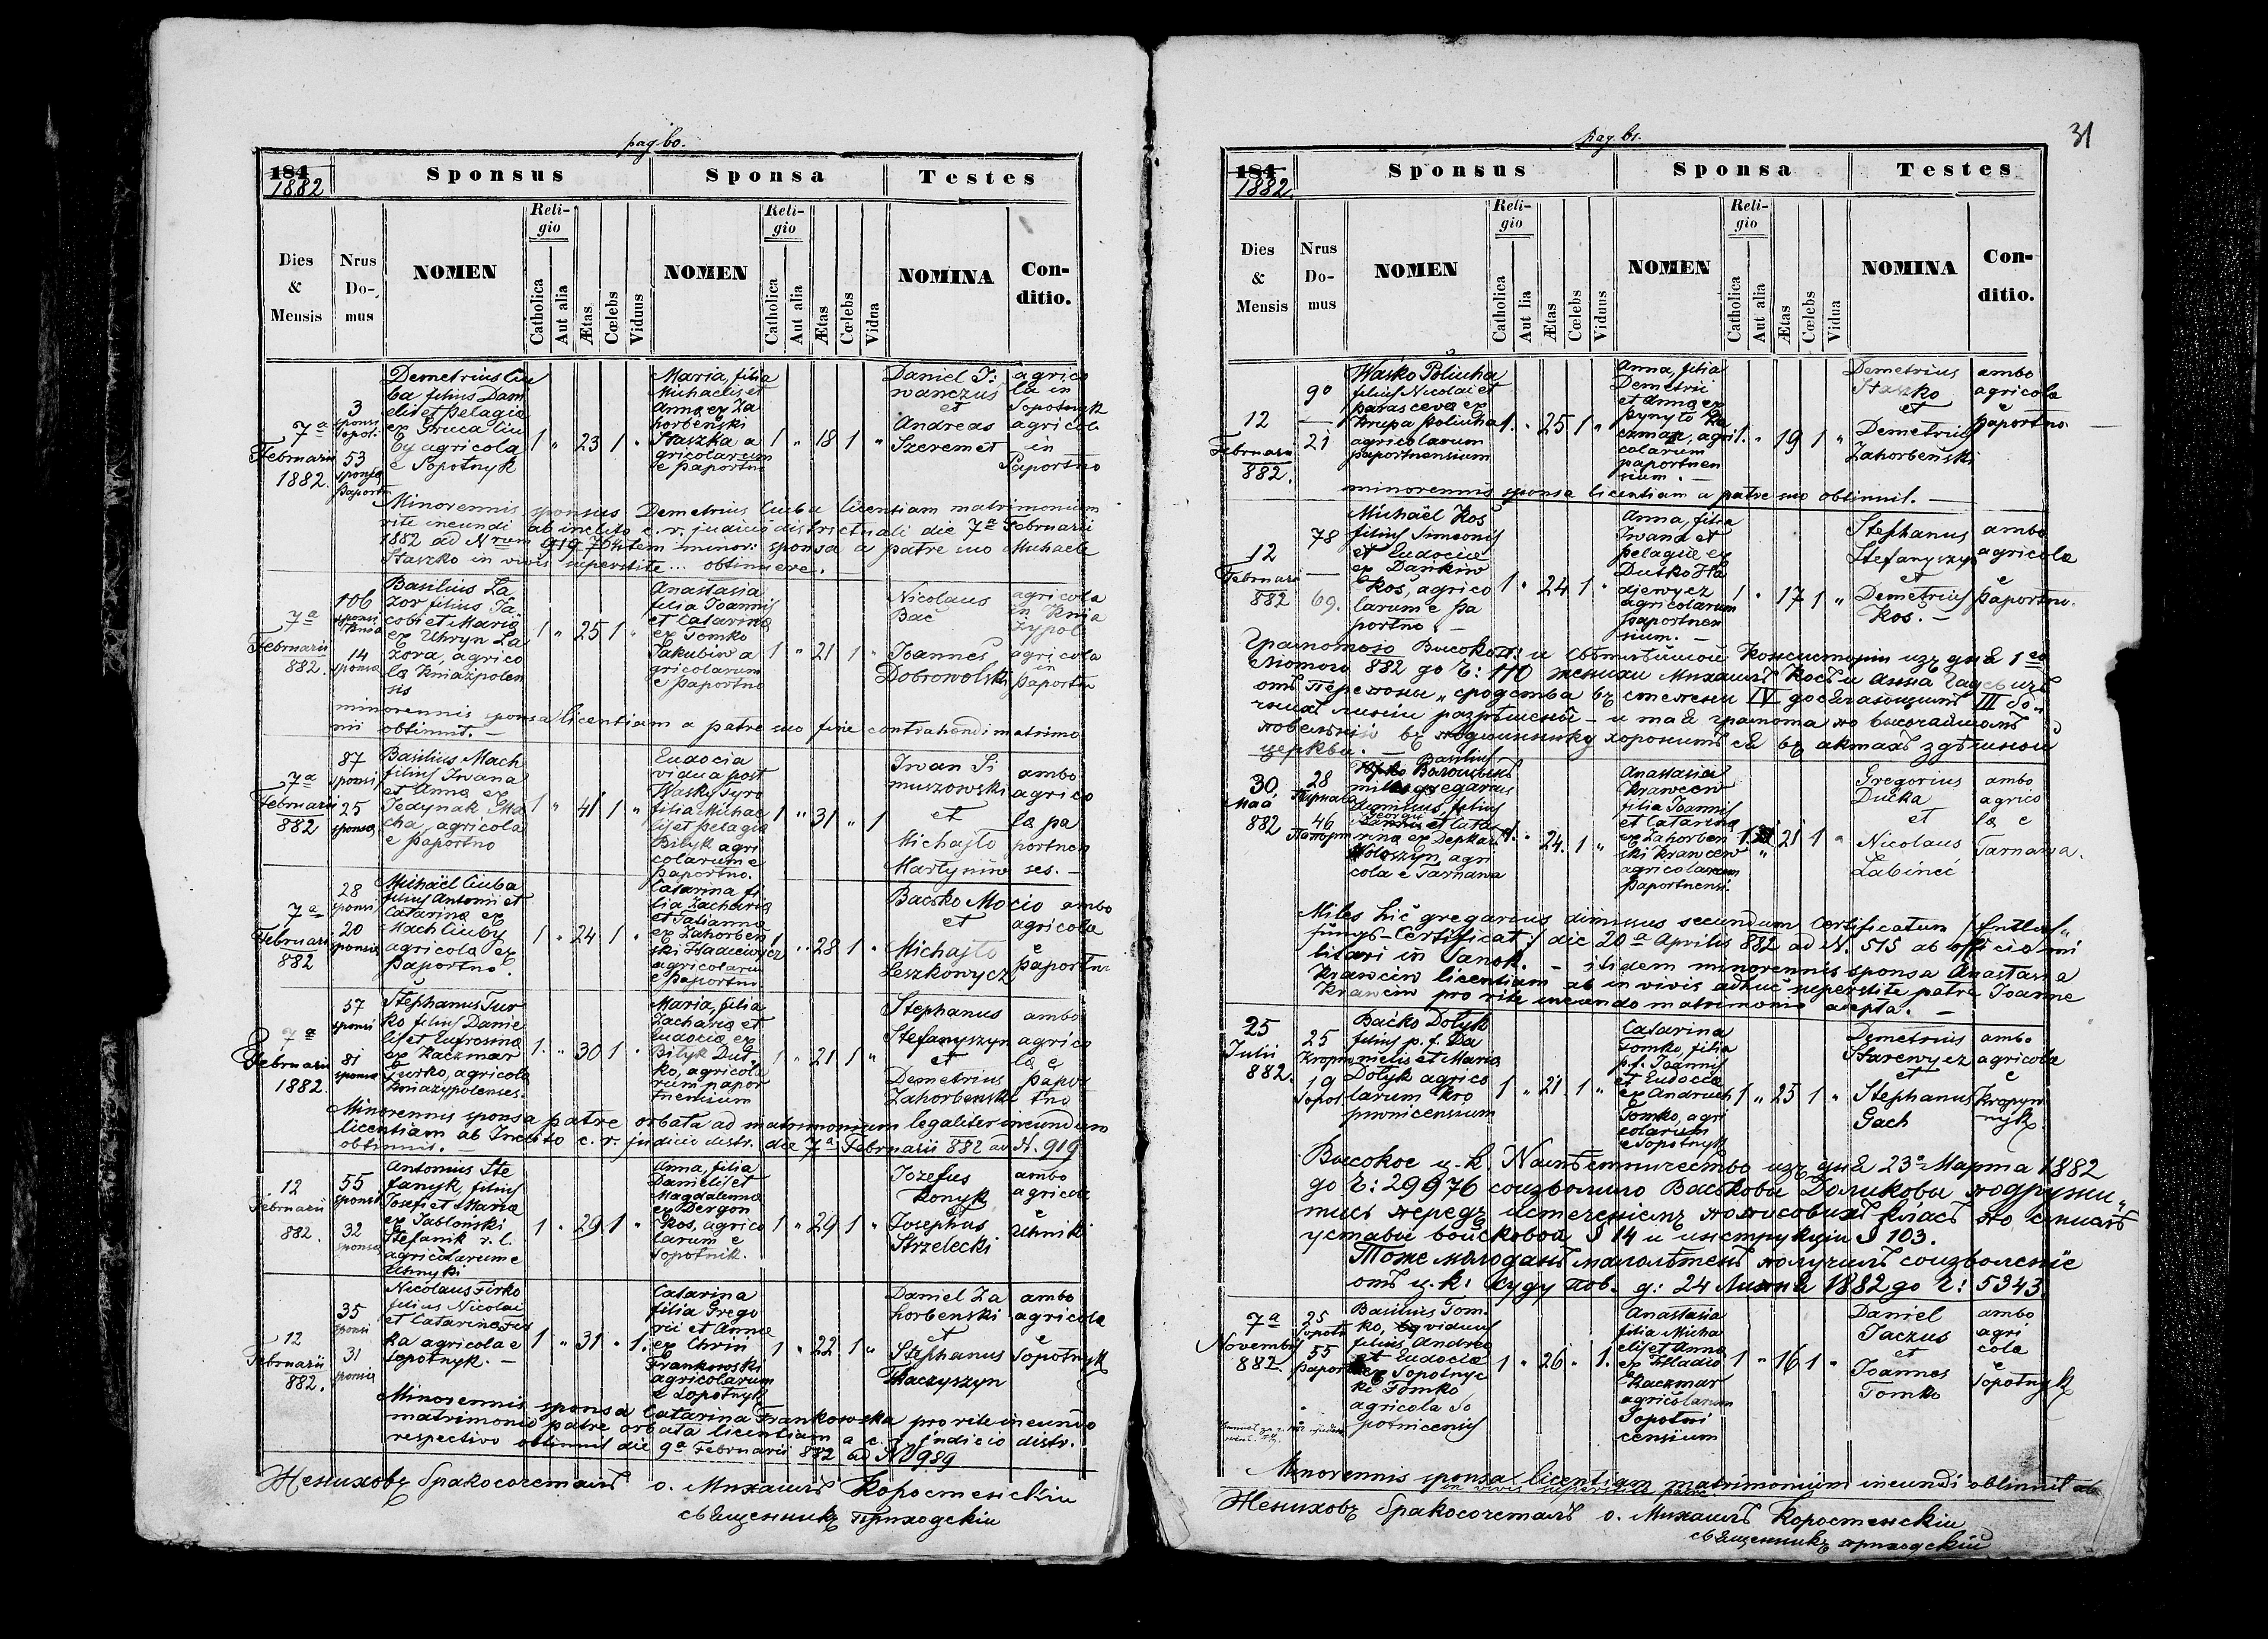 pag. 60.
184
1882
Sponsus
Sponsa
Testes
Dies & Mensis
Nrus Do- mus
NOMEN
Reli- gio
Catholica
Aut alia
Ætas
Cœlebs
Viduus
NOMEN
Reli- gio
Catholica
Aut alia
Ætas
Cœlebs
Vidua
NOMINA
Con- ditio.
7a
Februarii
1882.
3
sponsi
Sopot.
53
sponsæ
Paportn
Demetrius Ciu
ba filius Dani
elis et Pelagiæ
ex Hruca Ciu
by agricola
e Sopotnyk
1 " 23 1 "
Maria, filia
Michaelis et
Annæ ex Za
horbenski
Staszka a
gricolarum
e Paportno
1 " 18 1 "
Daniel I:
wanczus
et
Andreas
Szeremet
agrico
la in
Sopotnyk
agricol.
in
Paportno
Minorennis sponsus Demetrius Ciuba licentiam matrimonium
rite ineundi ab inclito c. r. judicio districtuali die 7a Februarii
1882 ad Nrum 919 item minor: sponsa a patre suo Michaele
Staszko in vivis superstite ... obtinuere.
7a
Februarii
882.
106
sponsi
14
sponsæ
Basilius La
zor filius Ja
cobi et Maria
ex Uhryn La
zora, agrico
la Kniazpolen
sis
1 " 25 1 "
Anastasia
filia Joannis
et Catarinæ
ex Tomko
Jakubiw a
gricolarum
e Paportno
1 " 21 1 "
Nicolaus
Bać
Joannes
Dobrowolski
agricola
in Knia
zypol
agricola
in
Paportn
minorennis sponsa licentiam a patre suo fine contrahendi matrimo
nii obtinuit. —
7a
Februarii
882
87
sponsi
25
sponsæ
Basilius Mach
filius Iwana
et Annæ ex
Jedynak Ma
cha, agricola
e Paportno
1 " 41 1 "
Eudocia
vidua post
Wasky Tyro
filia Michae
lis et Pelagiæ
Bilyk agri
colarum e
Paportno.
1 " 31 " 1
Iwan Si
muszowski
et
Michajło
Martyniw
ambo
agrico
læ pa
portnen
ses. —
7a
Februarii
882
28
sponsi
20
sponsæ
Michaël Ciuba
filius Antonii et
Catarinæ ex
Mach Ciuby
agricola ex
Paportno.
1 " 24 1 "
Catarina fi
lia Zachariæ
et Tatiannæ
ex Zahorben
ski Hadiewycz
agricolarum
e Paportno
1 " 28 1 "
Baćsko Mocio
et
Michajło
Leszkowycz
ambo
agricolæ
e
Paportno
7a
Februarii
1882.
57
sponsi
81
sponsæ
Stephanus Jur
ko filius Danie
lis et Eufrosinæ
ex Kaczmar
Jurko, agricola
Kniazypolenses.
1 " 30 1 "
Maria, filia
Zachariæ et
Eudociæ ex
Bilyk Dut
ko, agricola
rum papor
tnensium
1 " 21 1 "
Stephanus
Stefanyszyn
et
Demetrius
Zahorbenski
ambo
agrico
læ e
Papor
tno
Minorennis sponsa patre orbata ad matrimonium legaliter ineundum
licentiam ab Inclito c. r. judicio distr. die 7a Februarii 882 ad N. 919
obtinuit. —
12
Februarii
882.
55
sponsi
32
sponsæ
Antonius Ste
fanyk, filius
Josefi et Mariæ
ex Jabłonski
Stefanik r. l.
agricolarum e
Uhnyki
1 " 29 1 "
Anna, filia
Danielis et
Magdalennæ
ex Dergon
Kos, agrico
larum e
Sopotnik.
1 " 29 1 "
Jozefus
Konyk
Josephus
Strzelecki
ambo
agricolæ
e
Uhniki
12
Februarii
882.
35
sponsi
31
sponsæ
Nicolaus Firko
filius Nicolai
et Catarinæ
ka agricola e
Sopotnyk. —
1 " 31 " 1.
Catarina
filia Grego
rii et Annæ
ex Chrin
Frankowski
agricolarum
e Sopotnyk
1 " 22 1 "
Daniel Za
horbenski
et
Stephanus
Tkaczyszyn
ambo
agricolæ
e
Sopotnyk
Minorennis sponsa Catarina Frankowska pro rite ineundo
matrimonio patre orbata licentiam a c. r. judicio distr.
respectivo obtinuit die 9a Februarii 882 ad N 989
Жениховъ бракосочеталъ о. Михаилъ Коростенскій
священникъ приходскій
31
pag. 61.
184
1882.
Sponsus
Sponsa
Testes
Dies & Mensis
Nrus Do- mus
NOMEN
Reli- gio
Catholica
Aut alia
Ætas
Cœlebs
Viduus
NOMEN
Reli- gio
Catholica
Aut alia
Ætas
Cœlebs
Vidua
NOMINA
Con- ditio.
12
Februarii
882.
90
—
21
Waśko Poliuha
filius Nicolai et
Parascevæ ex
Krupa Poliuha
agricolarum
paportnensium
1. " 25 1 "
Anna, filia
Demetrii
et Annæ ex
Pynyło Ka
czmar, agri
colarum
paportnen
sium. —
1. " 19 1 "
Demetrius
Staszko
et
Demetrius
Zahorbeński
ambo
agricolæ
e
Paportno
minorennis sponsa licentiam a patre suo obtinuit. —
12
Februarii
882
78
—
69.
Michaël Koś
filius Simeonis
et Eudociæ
ex Dańkiw
Koś, agrico
larum e Pa
portno. —
1 " 24 1 "
Anna, filia
Iwana et
Pelagiæ ex
Dutko Ha
djewycz
agricolarum
paportnen
sium. —
1 " 17 1 "
Stephanus
Stefanyszyn
et
Demetrius
Kos. —
ambo
agricolæ
e
Paportno.
Грамотою Высокопр: и свѣтлѣйшой Консисторіи изъ дня 1го
Лютого 882 до Ч: 110 женихи Михаилъ Косъ и Анна Гадевичъ
отъ Перепоны „ сродства въ степени IV досягающимъ III бо„
чныхъ линіи разрѣшеній — и тая грамота по высочайшомъ
повелѣнію въ подлиннику хоронитъ ся въ актахъ здѣшной
церкви. —
30
Maa
882
28
46
Basilius
miles gregarius
dimissus, filius
Georgii et Cata
rinæ ex Depkar
Wołoszyn, agri
cola e Tarnawa
1. " 24. 1 "
Anastasia
Krawcew
filia Joannis
et Catarinæ
ex Zahorben
ski Krawcew
agricolarum
paportnensi.
1 " 21 1 "
Gregorius
Ducka
et
Nicolaus
Łabineć
ambo
agrico
læ e
Tarnawa.
Miles hic gregarius dimissus secundum Certificatum /: Entlas„
sungs-Certificat :/ die 20a Aprilis 882 ad N. 515 ab officio mi
litari in Sanok. — itidem minorennis sponsa Anastasia
Krawciw licentiam ab in vivis adhuc superstite patre Joanne
Krawciw pro rite ineundo matrimonio adepta. —
25
Julii
882.
25
Kropiw
19
Sopot
Baćko Dołyk
filius p. f. Da
nielis et Mariæ
Dołyk agrico
larum Kro
piwnicensium
1 " 21. 1 "
Catarina
Tomko, filia
p. f. Joannis
et Eudociæ
ex Andruch
Tomko, agri
colarum
e Sopotnyk
1 " 23 1 "
Demetrius
Starewycz
et
Stephanus
Gach
ambo
agricolæ
e
Kropyw
nyk
Высокое ц. к. Намѣстничество изъ дня 23о Марта 1882
до Ч: 29976 соизволило Васькови Доликови подружи„
тись передъ истеченіемъ пописовихъ класъ по смислѣ
уставы войсковой § 14 и инструкціи § 103.
Тоже молоданъ малолѣтенъ получилъ соизволеніе
отъ ц. к: Суду пов. д: 24 Липня 1882 до Ч: 5343.
7a
Novembris
882.
25
Sopotn
55
Paport
Basilius Tom
ko, viduus
filius Andreæ
et Eudociæ
ex Sopotnyc
ki Tomko
agricola So
potnicensis
1 " 26 " 1.
Anastasia
filia Micha
elis et Annæ
ex Hladio
Kaczmar
agricolarum
Sopotni
censium
1 " 16 1 "
Daniel
Jaczus
et
Joannes
Tomko
ambo
agri
colæ
e
Sopotnyk
Minorennis sponsa licentiam matrimonium ineundi obtinuit ab
in vivis superstite patre.
Жениховъ бракосочеталъ о. Михаилъ Коростенскій
священникъ приходскій